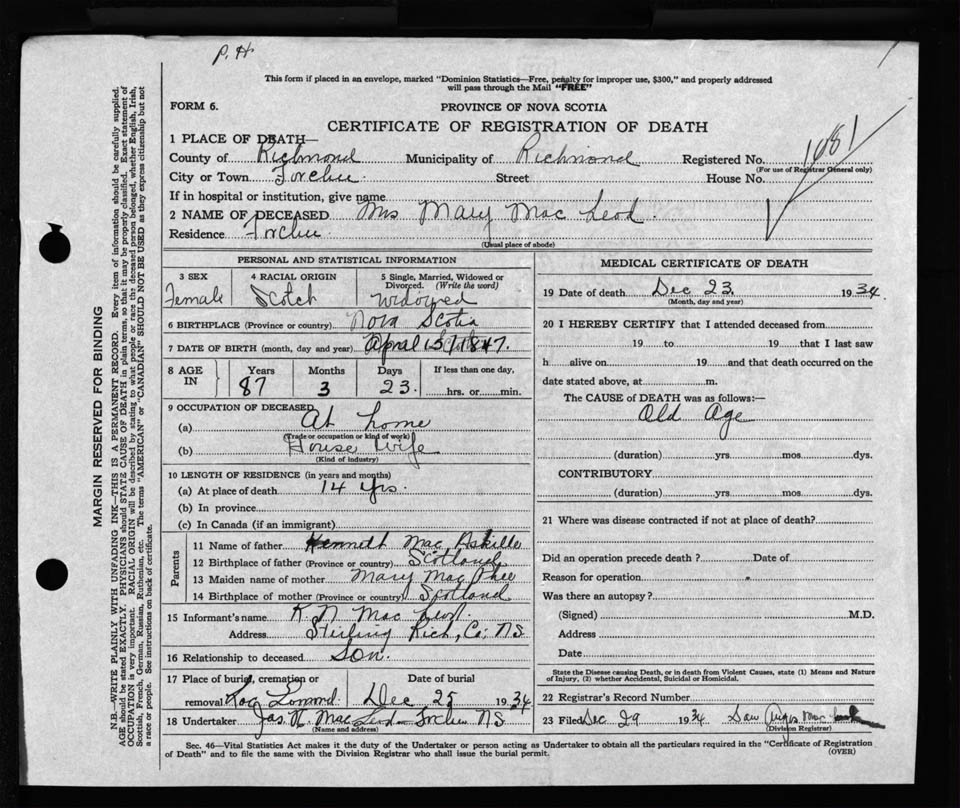 P. H
This form if placed in an envelope, marked "Dominion Statistics—Free, penalty for improper use, $300," and properly addressed
will pass through the Mail "FREE"
FORM 6.
PROVINCE OF NOVA SCOTIA
CERTIFICATE OF REGISTRATION OF DEATH
1 PLACE OF DEATH—
County of Richmond Municipality of Richmond Registered No. 1681
(For use of Registrar General only)
City or Town Forchu Street House No.
If in hospital or institution, give name
2 NAME OF DECEASED Mrs Mary Mac Leod.
Residence Forchu
(Usual place of abode)
PERSONAL AND STATISTICAL INFORMATION
3 SEX 4 RACIAL ORIGIN 5 Single, Married, Widowed or
Divorced. (Write the word)
Female Scotch Widowed
6 BIRTHPLACE (Province or country) Nova Scotia
7 DATE OF BIRTH (month, day and year) April 15/1847.
8 AGE IN Years Months Days If less than one day,
87 3 23. hrs. or min.
9 OCCUPATION OF DECEASED
(a) At home
(Trade or occupation or kind of work)
(b) House wife
(Kind of industry)
10 LENGTH OF RESIDENCE (in years and months)
(a) At place of death 14 yrs.
(b) In province
(c) In Canada (if an immigrant)
Parents
11 Name of father Kenneth Mac Askille
12 Birthplace of father (Province or country) Scotland
13 Maiden name of mother Mary Mac Phee
14 Birthplace of mother (Province or country) Scotland
15 Informant's name K. N Mac Leod.
Address Stirling Rich, Co. N.S.
16 Relationship to deceased Son.
17 Place of burial, cremation or Date of burial
removal Lomond Dec 25 1934
18 Undertaker Jas. N. Mac Leod Forchu N S
(Name and address)
MEDICAL CERTIFICATE OF DEATH
19 Date of death Dec 23. 1934.
(Month, day and year)
20 I HEREBY CERTIFY that I attended deceased from
19 to 19 that I last saw
h alive on 19 and that death occurred on the
date stated above, at m.
The CAUSE of DEATH was as follows:—
Old Age
(duration) yrs mos dys.
CONTRIBUTORY
(duration) yrs mos dys.
21 Where was disease contracted if not at place of death?
Did an operation precede death ? Date of
Reason for operation
Was there an autopsy ?
(Signed) M.D.
Address
Date
State the Disease causing Death, or in death from Violent Causes, state (1) Means and Nature
of Injury, (2) whether Accidental, Suicidal or Homicidal.
22 Registrar's Record Number
23 Filed Dec 29 1934 Dan Angus Mac
(Division Registrar)
Sec. 46—Vital Statistics Act makes it the duty of the Undertaker or person acting as Undertaker to obtain all the particulars required in the "Certificate of Registration
of Death" and to file the same with the Division Registrar who shall issue the burial permit.
(OVER)
MARGIN RESERVED FOR BINDING
N.B.—WRITE PLAINLY WITH UNFADING INK—THIS IS A PERMANENT RECORD. Every item of information should be carefully supplied.
AGE should be stated EXACTLY. PHYSICIANS should STATE CAUSE OF DEATH in plain terms, so that it may be properly classified. Exact statement of
OCCUPATION is very important. RACIAL ORIGIN will be described by stating to what people or race the deceased person belonged, whether English, Irish,
Scottish, French, German, Russian, Ruthenian, etc. The terms "AMERICAN" or "CANADIAN" SHOULD NOT BE USED as they express citizenship but not
a race or people. See instructions on back of certificate.